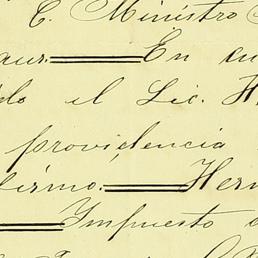 C. Ministro
En cu
do el Lic. H
providencia
firmo. Hern
Impuesto